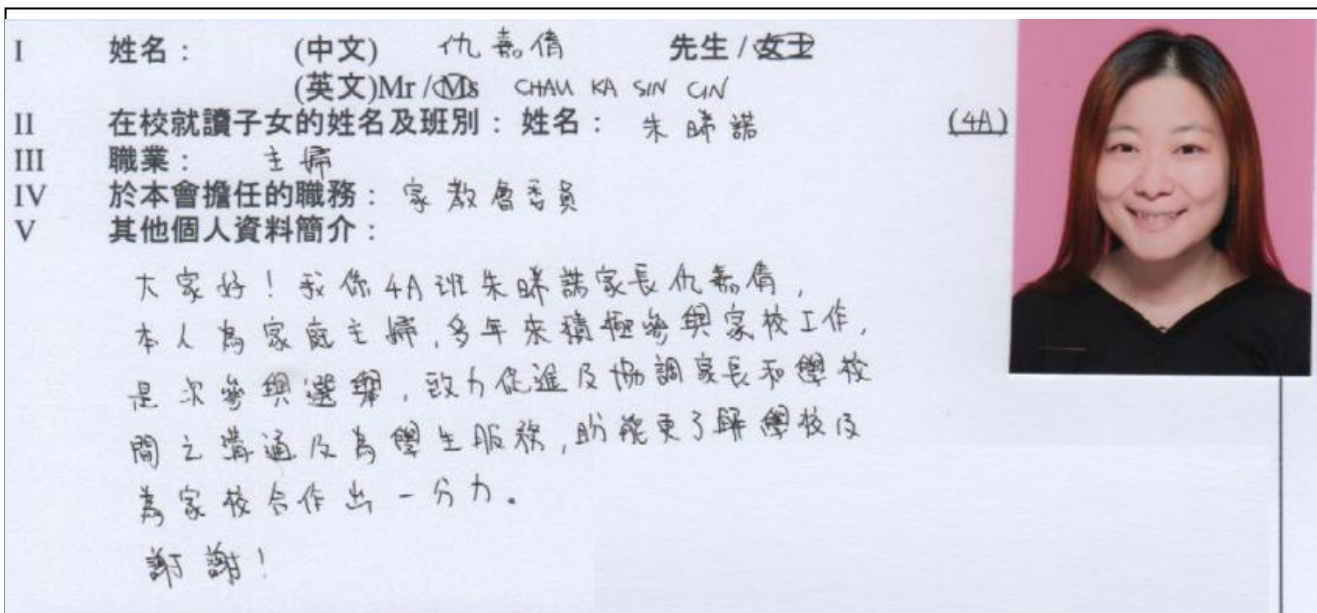 I 姓名： (中文) 仇嘉倩 先生 / 女士
(英文)Mr / Ms CHAU KA SIN CIN
II 在校就讀子女的姓名及班別： 姓名： 朱晞諾 (4A)
III 職業： 主婦
IV 於本會擔任的職務： 家教會委員
V 其他個人資料簡介：
大家好！我係4A班朱晞諾家長仇嘉倩，
本人為家庭主婦，多年來積極參與家校工作，
是次參與選舉，致力促進及協調家長和學校
間之溝通及為學生服務，盼能更了解學校及
為家校合作出一分力。
謝謝！